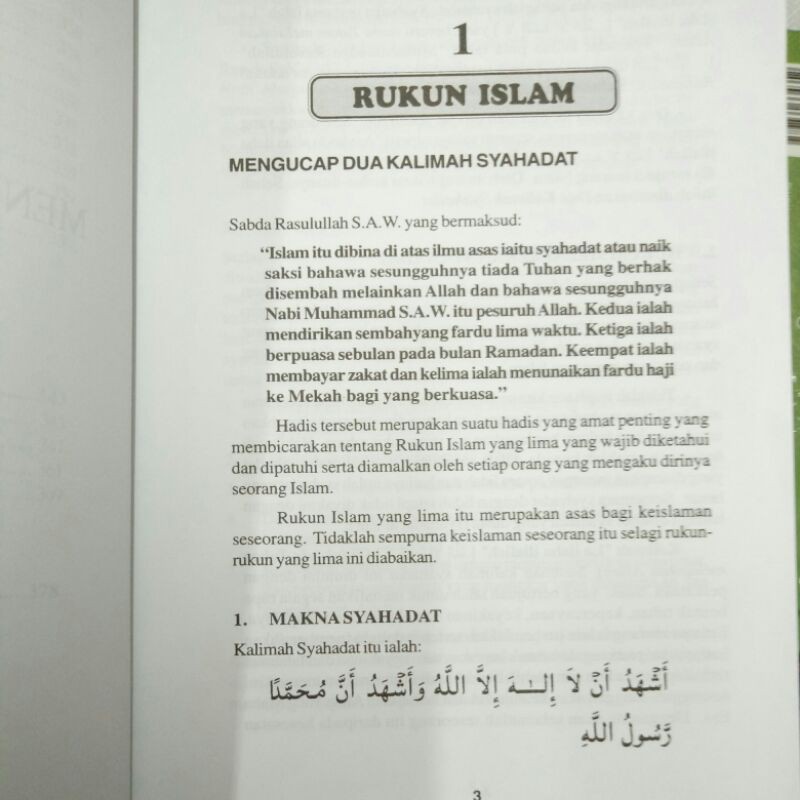 1
RUKUN ISLAM
MENGUCAP DUA KALIMAH SYAHADAT
Sabda Rasulullah S.A.W. yang bermaksud:
“Islam itu dibina di atas ilmu asas iaitu syahadat atau naik
saksi bahawa sesungguhnya tiada Tuhan yang berhak
disembah melainkan Allah dan bahawa sesungguhnya
Nabi Muhammad S.A.W. itu pesuruh Allah. Kedua ialah
mendirikan sembahyang fardu lima waktu. Ketiga ialah
berpuasa sebulan pada bulan Ramadan. Keempat ialah
membayar zakat dan kelima ialah menunaikan fardu haji
ke Mekah bagi yang berkuasa.”
Hadis tersebut merupakan suatu hadis yang amat penting yang
membicarakan tentang Rukun Islam yang lima yang wajib diketahui
dan dipatuhi serta diamalkan oleh setiap orang yang mengaku dirinya
seorang Islam.
Rukun Islam yang lima itu merupakan asas bagi keislaman
seseorang. Tidaklah sempurna keislaman seseorang itu selagi rukun-
rukun yang lima ini diabaikan.
1. MAKNA SYAHADAT
Kalimah Syahadat itu ialah:
أَشْهَدُ أَنْ لاَ إِلـٰـهَ إِلاَّ اللَّهُ وَأَشْهَدُ أَنَّ مُحَمَّدًا
رَّسُولُ اللَّهِ
3